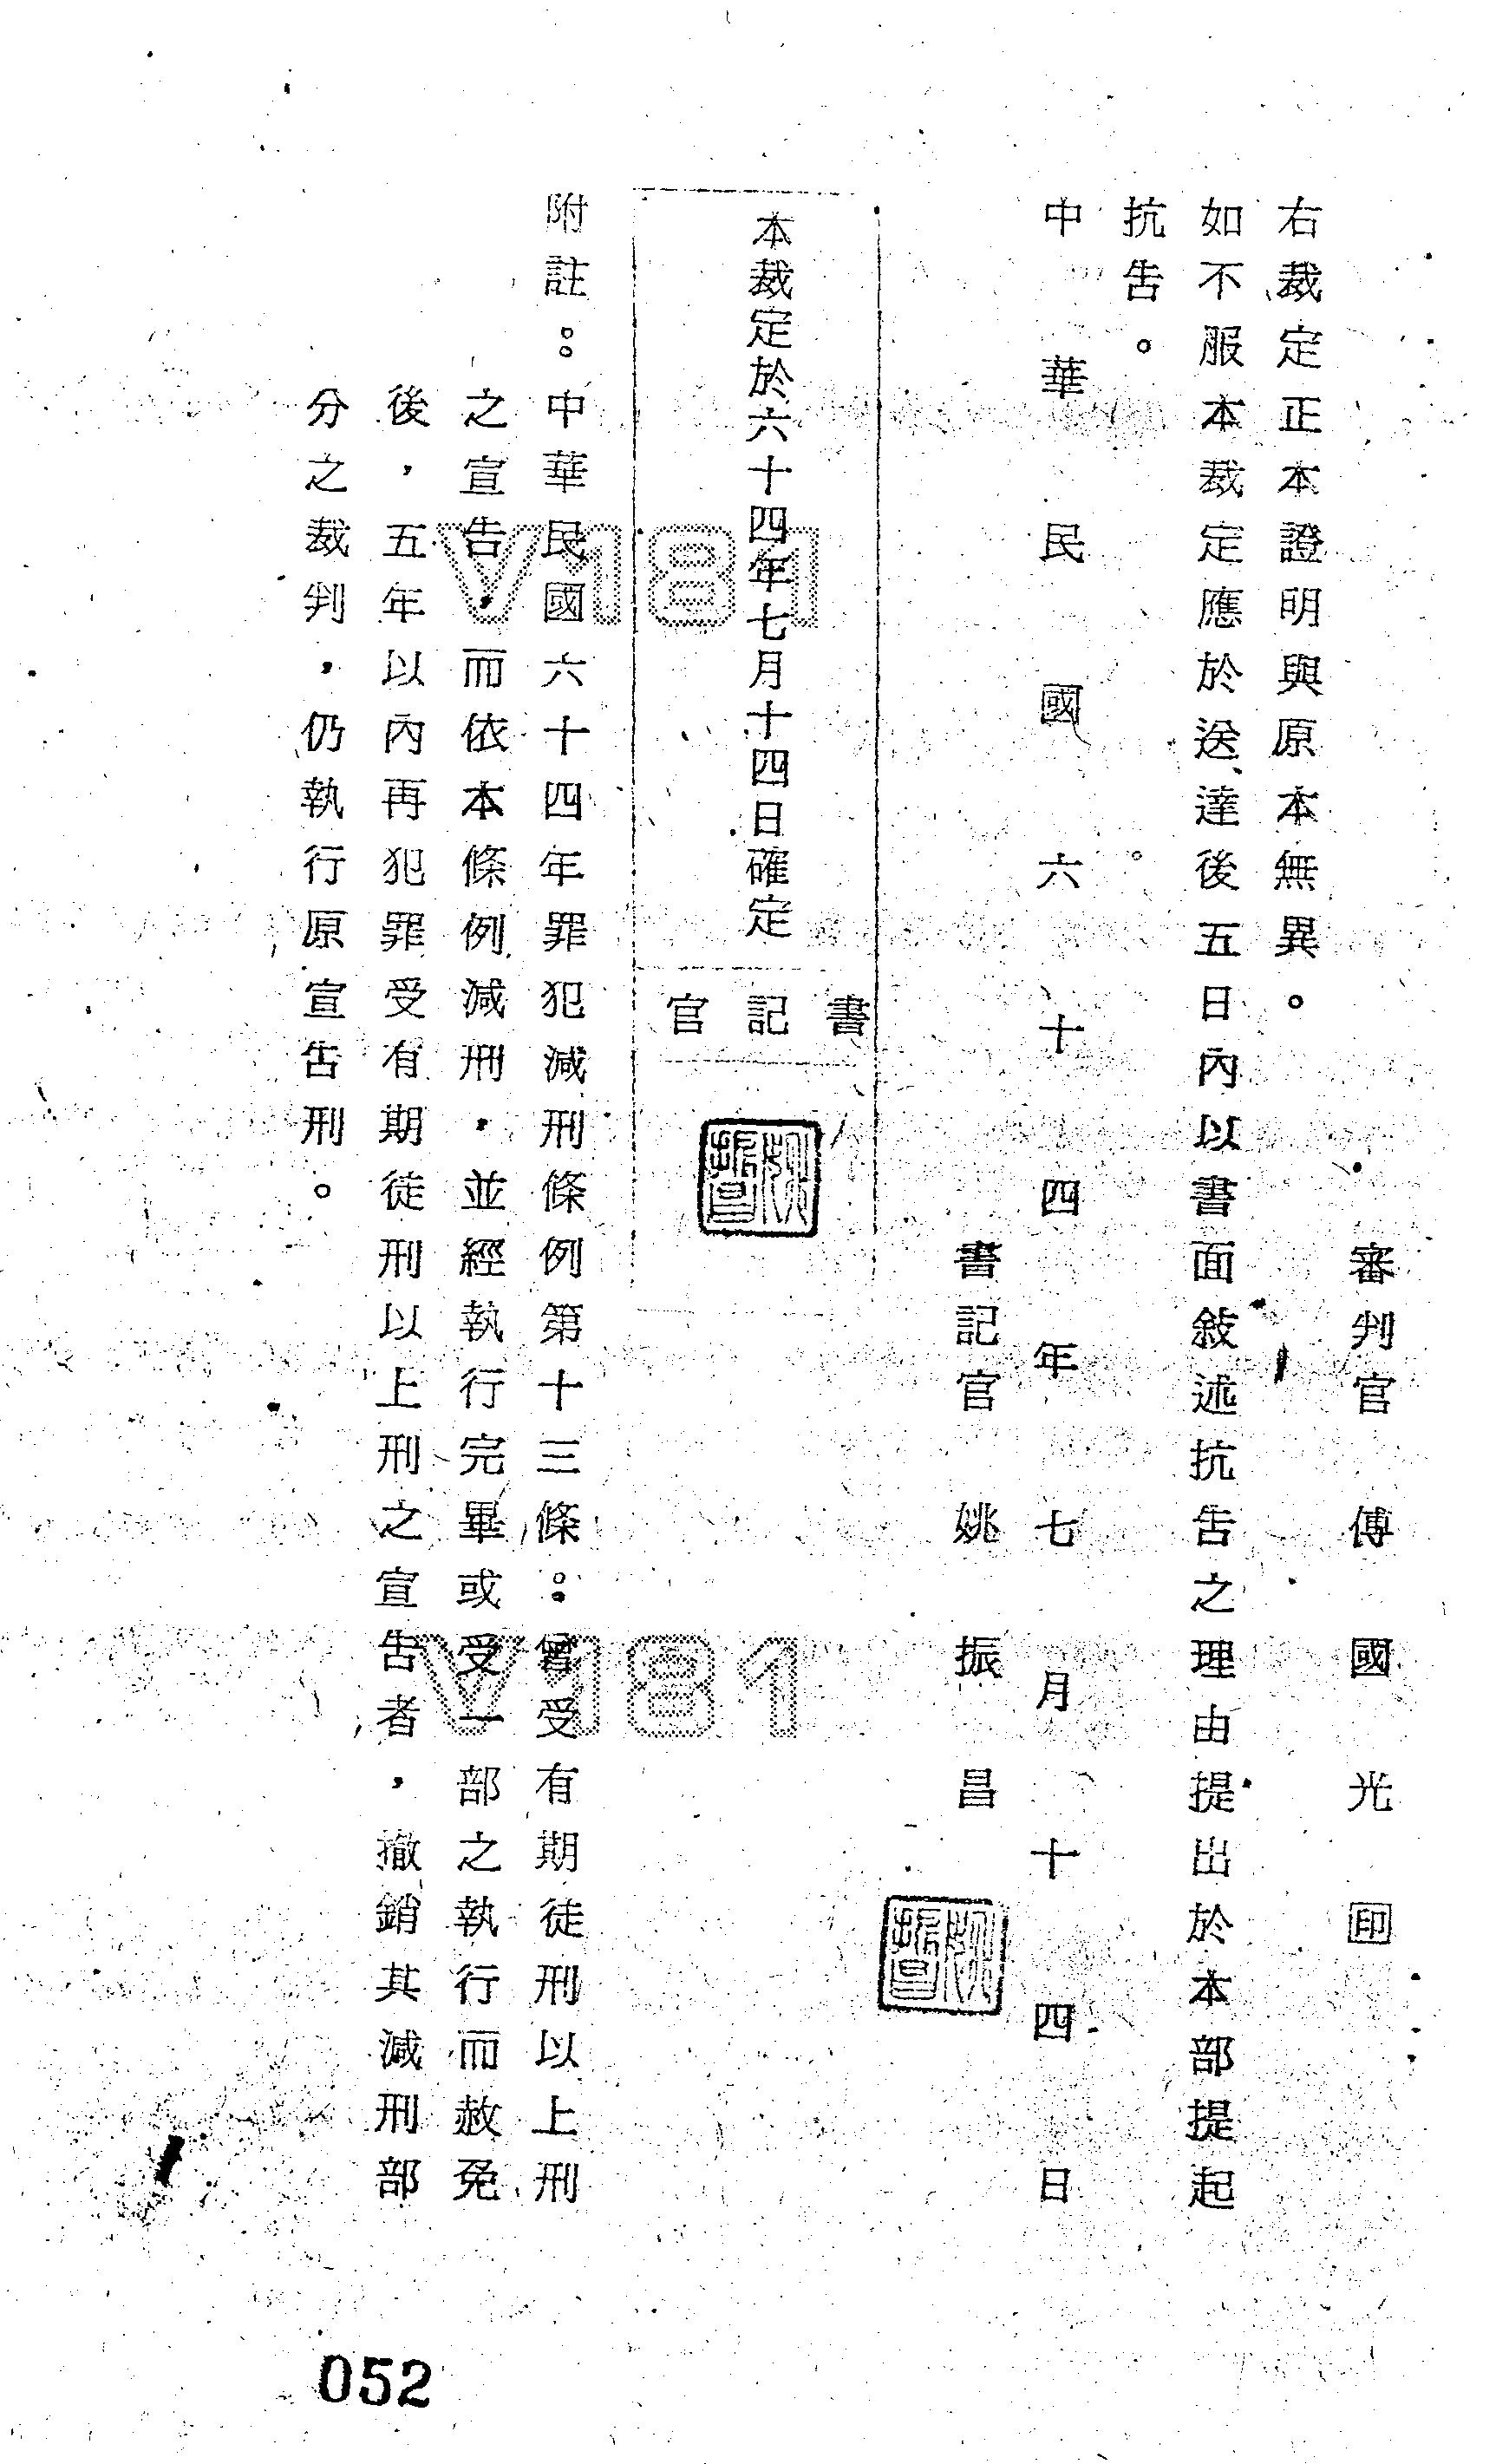 審判官　傅國光　印
右裁定正本證明與原本無異。
如不服本裁定應於送達後五日內以書面敍述抗告之理由提出於本部提起
抗告。
中華民國六十四年七月十四日
書記官　姚振昌
姚振昌
本裁定於六十四年七月十四日確定
書記官
姚振昌
附註：中華民國六十四年罪犯減刑條例第十三條：曾受有期徒刑以上刑
之宣告，而依本條例減刑，並經執行完畢或受一部之執行而赦免
後，五年以內再犯罪受有期徒刑以上刑之宣告者，撤銷其減刑部
分之裁判，仍執行原宣告刑。
V181
V181
052